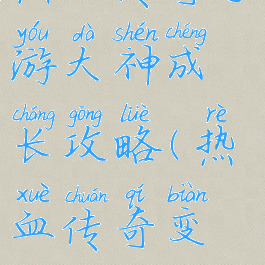 yóu dà shén chéng
游大神成
cháng gōng lüè rè
长攻略(热
xuè chuán qí biàn
血传奇变